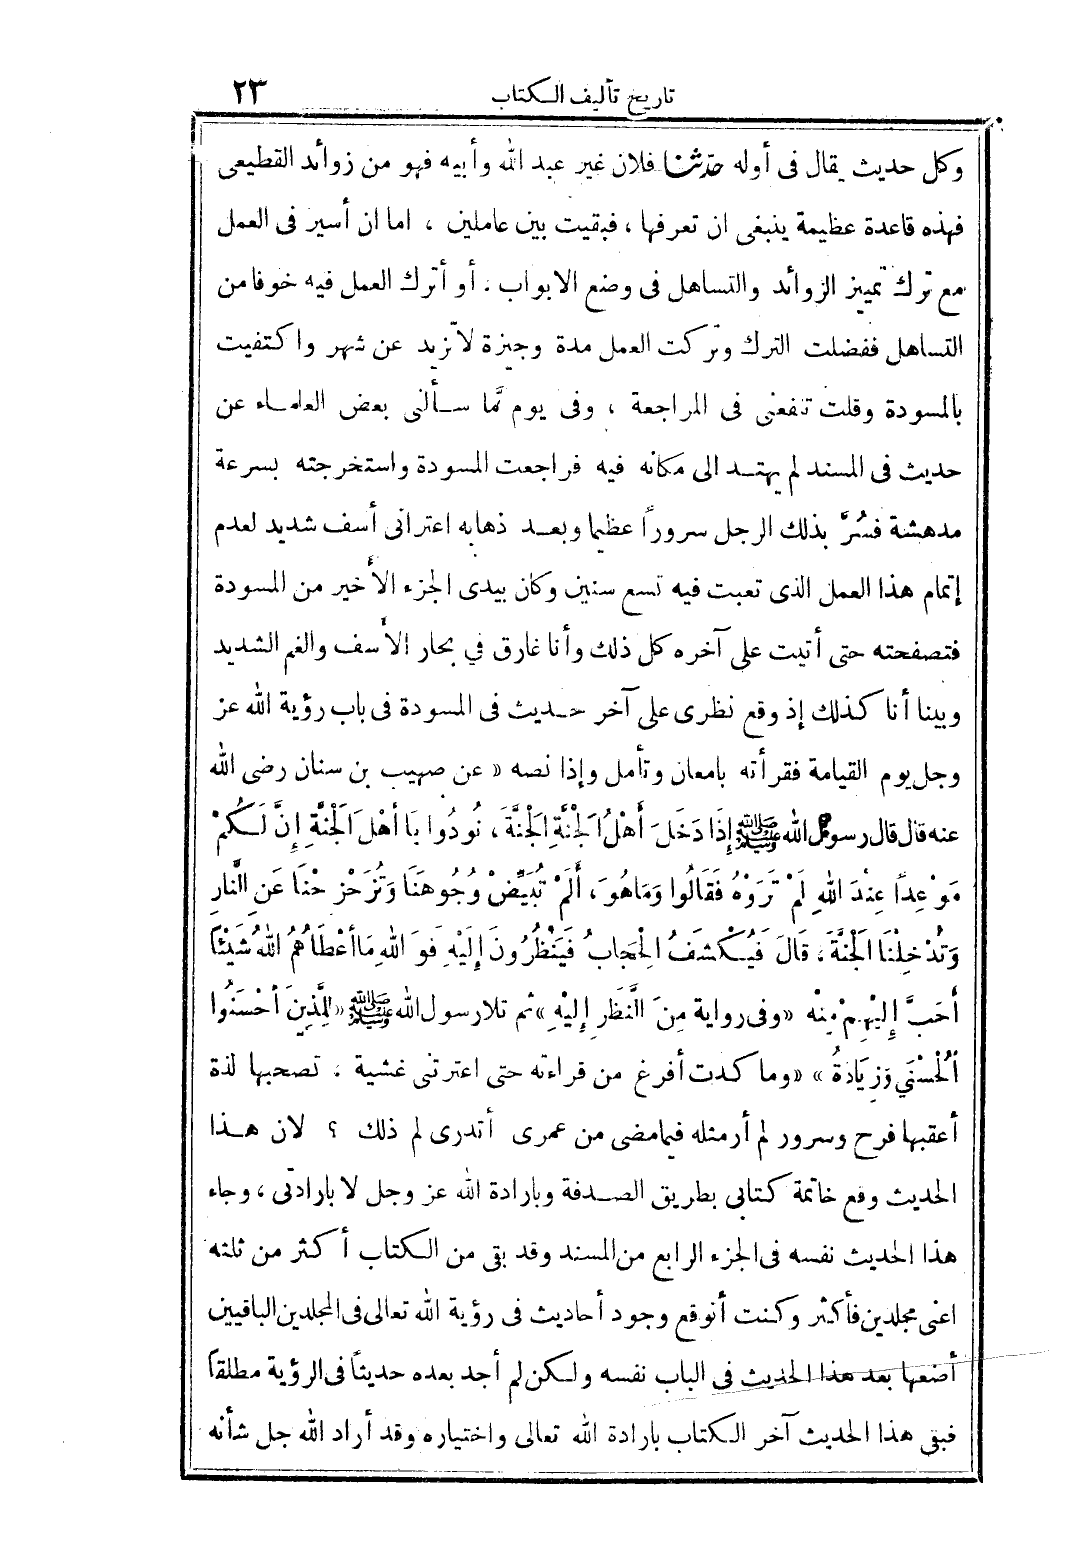 تاريخ تأليف الكتاب ٢٣
وكل حديث يقال فى أوله حدثنا فلان غير عبد الله وأبيه فهو من زوائد القطيعى
فهذه قاعدة عظيمة ينبغى ان تعرفها ، فبقيت بين عاملين ، اما ان أسير فى العمل
مع ترك تمييز الزوائد والتساهل فى وضع الابواب ، أو أترك العمل فيه خوفا من
التساهل ففضلت الترك وتركت العمل مدة وجيزة لا تزيد عن شهر واكتفيت
بالمسودة وقلت تنفعنى فى المراجعة ، وفى يوم مَّا سألنى بعض العلماء عن
حديث فى المسند لم يهتد الى مكانه فيه فراجعت المسودة واستخرجته بسرعة
مدهشة فسُرَّ بذلك الرجل سروراً عظيما وبعد ذهابه اعترانى أسف شديد لعدم
إتمام هذا العمل الذى تعبت فيه تسع سنين وكان بيدى الجزء الأخير من المسودة
فتصفحته حتى أتيت على آخره كل ذلك وأنا غارق في بحار الأسف والغم الشديد
وبينا أنا كذلك إذ وقع نظرى على آخر حديث فى المسودة فى باب رؤية الله عز
وجل يوم القيامة فقرأته بامعان وتأمل وإذا نصه « عن صهيب بن سنان رضى الله
عنه قال قال رسول الله ﷺ إِذَا دَخَلَ أَهْلُ الْجَنَّةِ الْجَنَّةَ ، نُودُوا يَا أَهْلَ الْجَنَّةِ إِنَّ لَكُمْ
مَوْعِداً عِنْدَ اللهِ لَمْ تَرَوْهُ فَقَالُوا وَمَاهُوَ ، أَلَمْ تُبَيِّضْ وُجُوهَنَا وَتُزَحْزِحْنَا عَنِ النَّارِ
وَتُدْخِلْنَا الْجَنَّةَ ، قَالَ فَيُكْشَفُ الْحِجَابُ فَيَنْظُرُونَ إِلَيْهِ فَوَ اللهِ مَا أَعْطَاهُمُ اللهُ شَيْئًا
أَحَبَّ إِلَيْهِمْ مِنْه «وفى رواية مِنَ النَّظَرِ إِلَيْهِ» ثم تلا رسول الله ﷺ «لِلَّذِينَ أَحْسَنُوا
الْحُسْنَى وَزِيَادَةٌ » «وما كدت أفرغ من قراءته حتى اعترتنى غشية ، تصحبها لذة
أعقبها فرح وسرور لم أر مثله فيما مضى من عمرى أتدرى لم ذلك ؟ لان هذا
الحديث وقع خاتمة كتابى بطريق الصدفة وبارادة الله عز وجل لا بارادتى ، وجاء
هذا الحديث نفسه فى الجزء الرابع من المسند وقد بقى من الكتاب أكثر من ثلثه
اعنى مجلدين فأكثر وكنت أتوقع وجود أحاديث فى رؤية الله تعالى فى المجلدين الباقيين
أضعها بعد هذا الحديث فى الباب نفسه ولكن لم أجد بعده حديثاً فى الرؤية مطلقاً
فبقى هذا الحديث آخر الكتاب بارادة الله تعالى واختياره وقد أراد الله جل شأنه